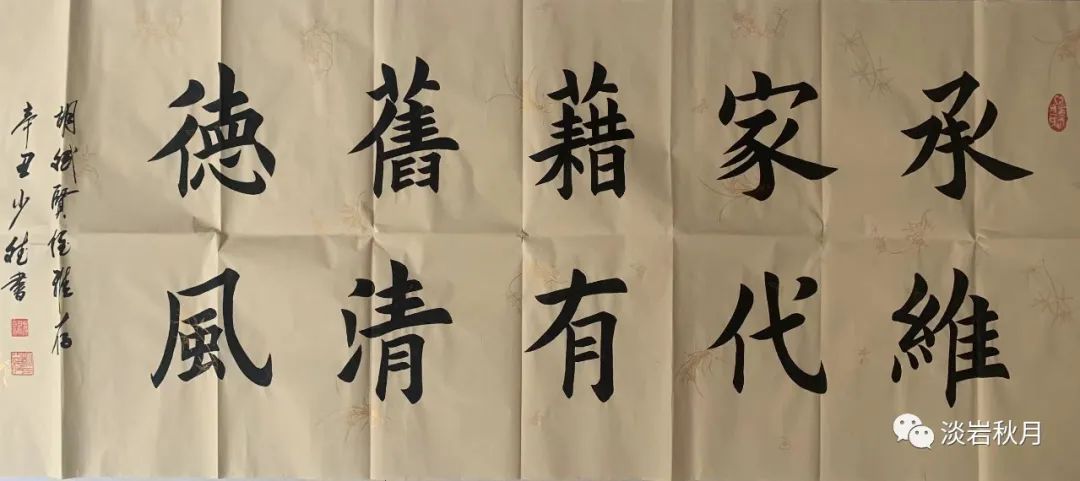 承維
家代
藉有
舊清
德風
胡斌賢侄雅存
辛丑少書
淡岩秋月